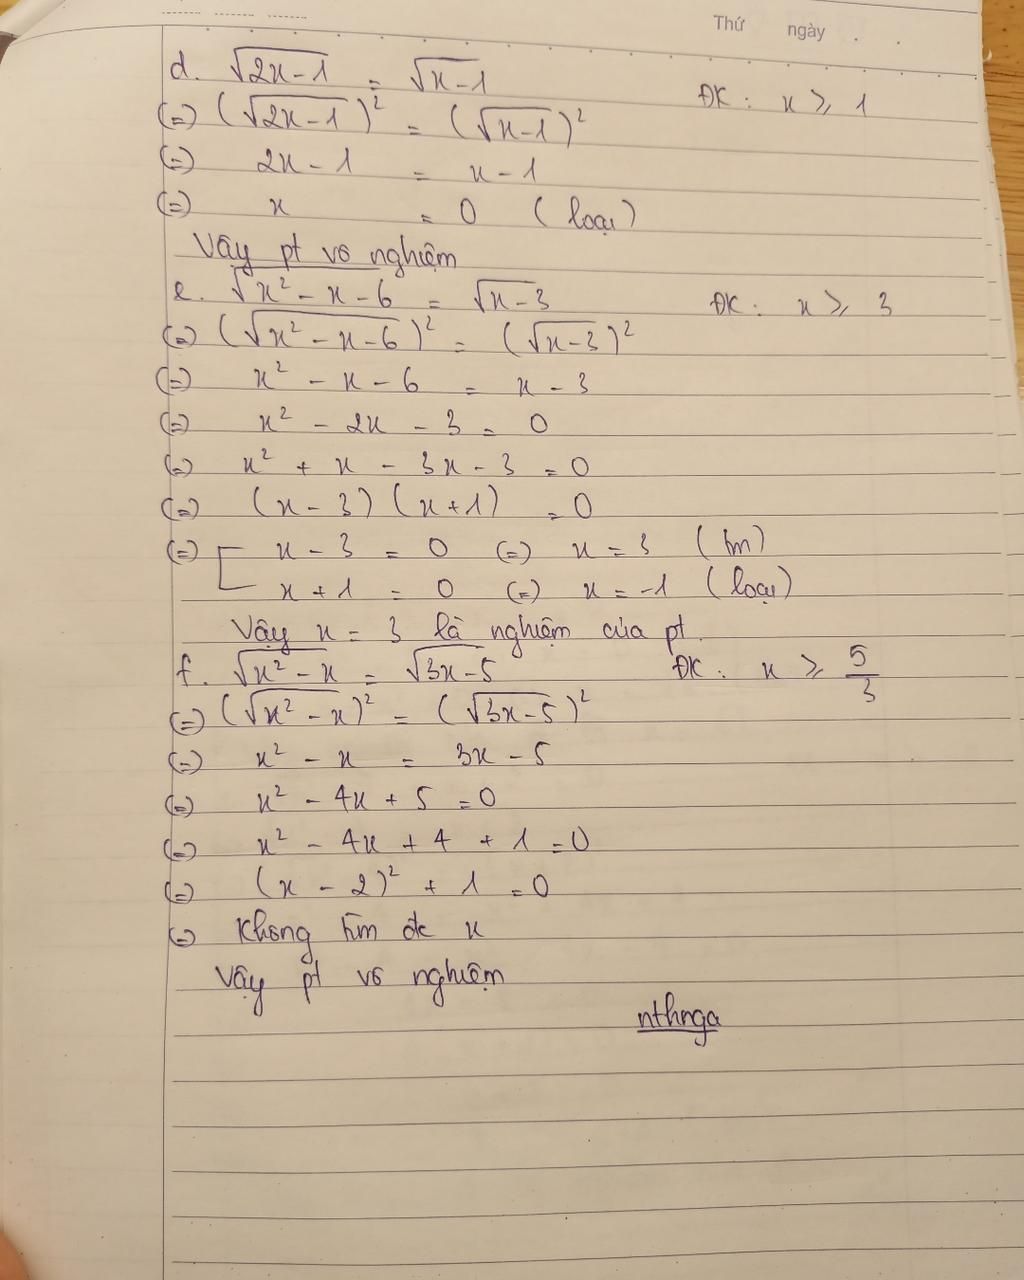 Thứ ngày . .
d. √(2x-1) = √(x-1) ĐK: x ⩾ 1
(=) (√(2x-1))² = (√(x-1))²
(=) 2x - 1 = x - 1
(=) x = 0 (loại)
Vậy pt vô nghiệm
e. √(x² - x - 6) = √(x-3) ĐK: x ⩾ 3
(=) (√(x² - x - 6))² = (√(x-3))²
(=) x² - x - 6 = x - 3
(=) x² - 2x - 3 = 0
(=) x² + x - 3x - 3 = 0
(=) (x - 3) (x + 1) = 0
(=) [ x - 3 = 0 (=) x = 3 (tm)
x + 1 = 0 (=) x = -1 (loại)
Vậy x = 3 là nghiệm của pt.
f. √(x² - x) = √(3x-5) ĐK: x ⩾ 5/3
(=) (√(x² - x))² = (√(3x-5))²
(=) x² - x = 3x - 5
(=) x² - 4x + 5 = 0
(=) x² - 4x + 4 + 1 = 0
(=) (x - 2)² + 1 = 0
(=) Không tìm đc x
Vậy pt vô nghiệm
nthnga